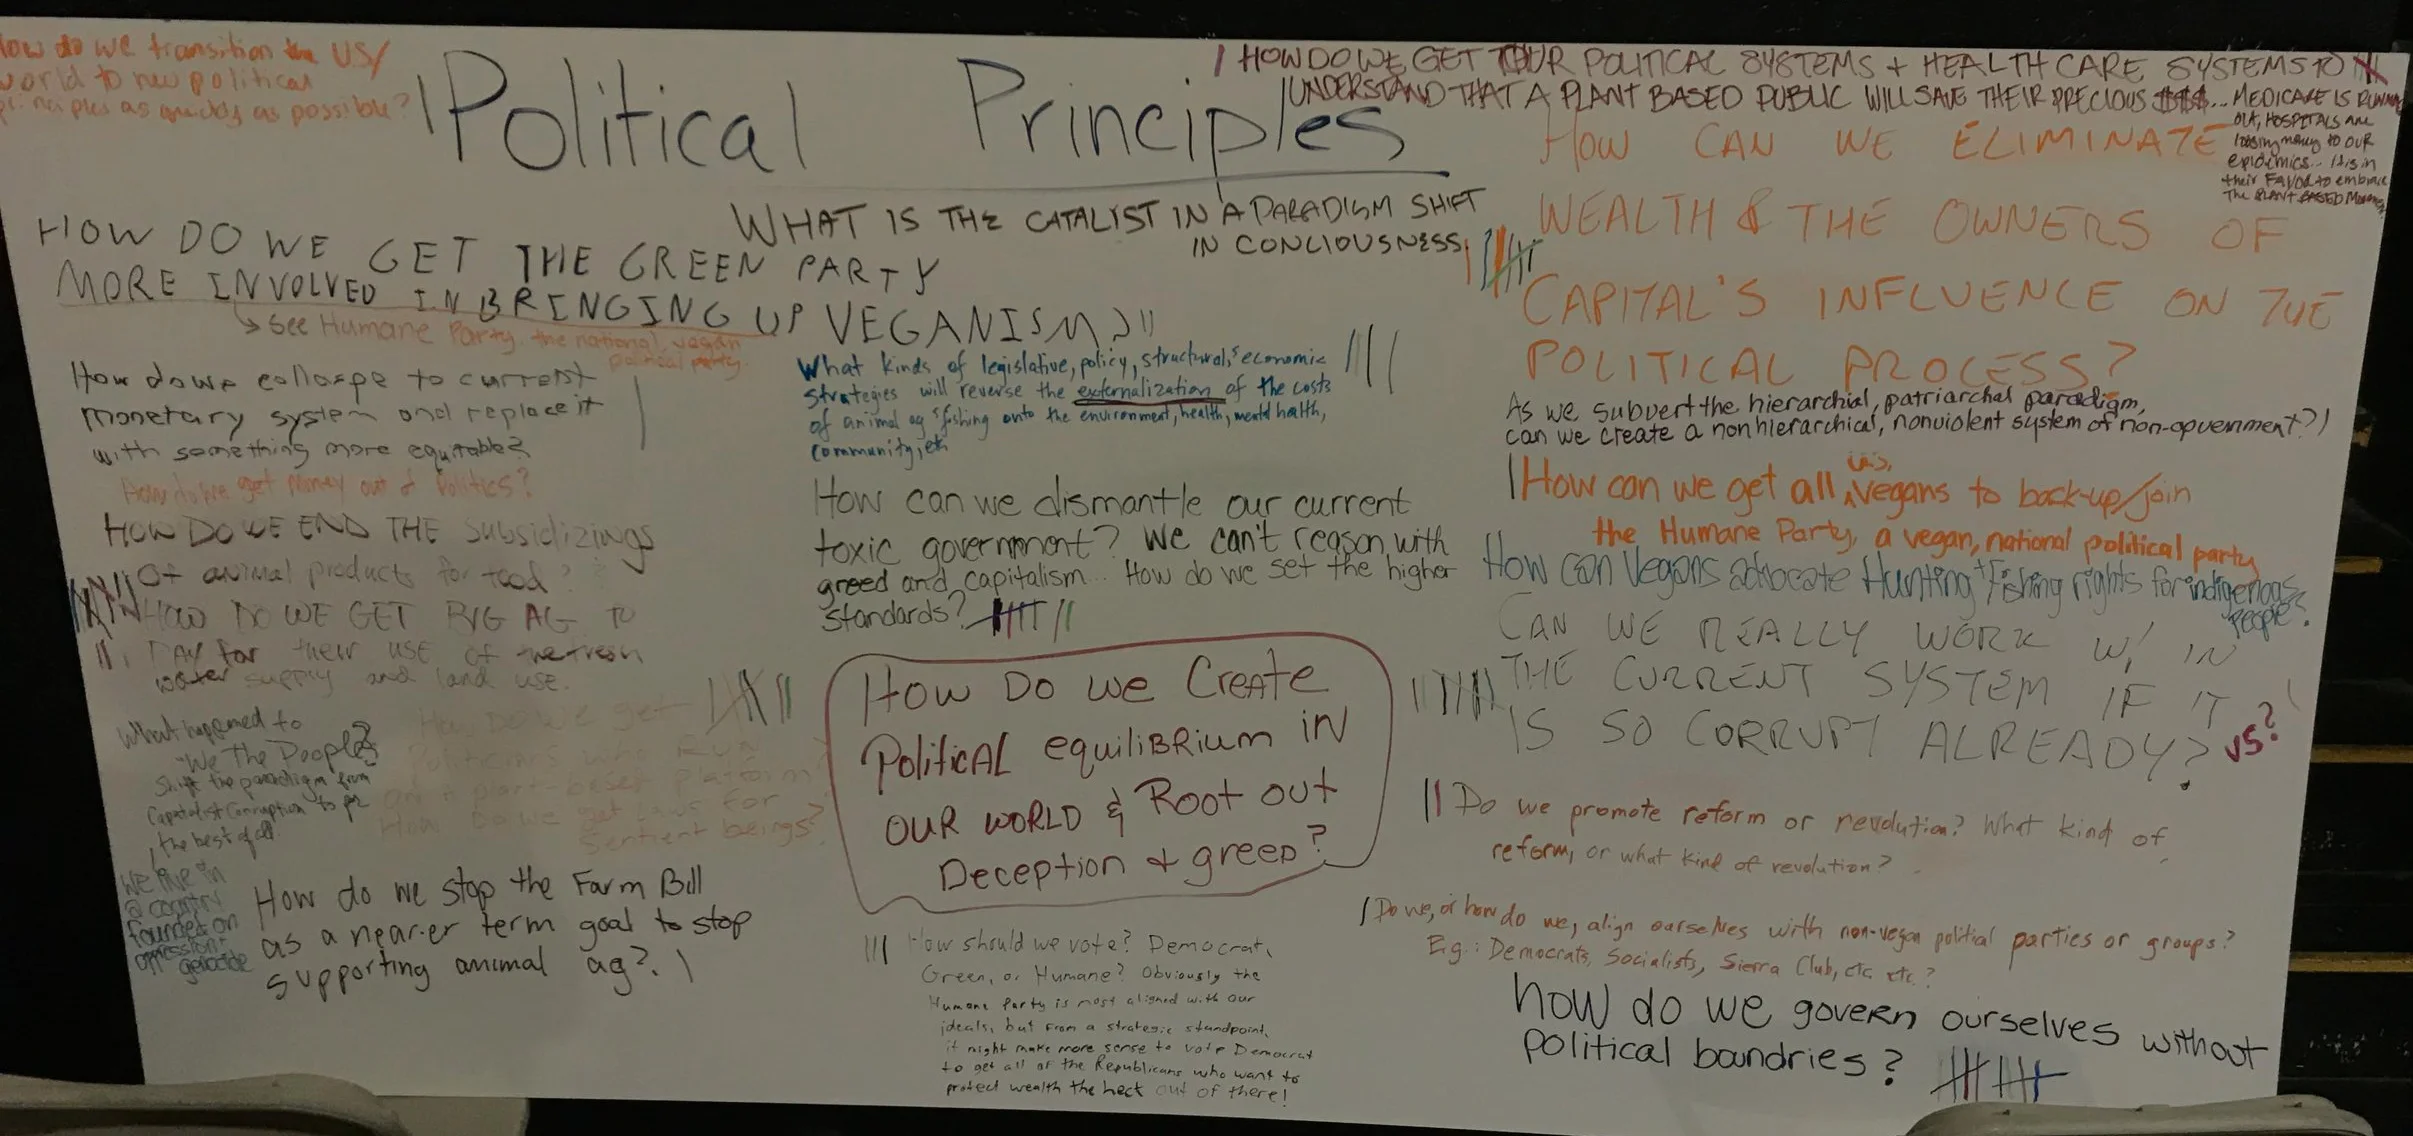 How do we transition the US/
world to new political
principles as quickly as possible?
Political Principles
HOW DO WE GET OUR POLITICAL SYSTEMS + HEALTH CARE SYSTEMS TO
UNDERSTAND THAT A PLANT BASED PUBLIC WILL SAVE THEIR PRECIOUS $$$... MEDICARE IS RUNNING
OUT, HOSPITALS ARE
loosing money to our
epidemics.. It is in
their Favor to embrace
The PLANT BASED
WHAT IS THE CATALIST IN A PARADIGM SHIFT
IN CONCIOUSNESS
HOW DO WE GET THE GREEN PARTY
MORE INVOLVED IN BRINGING UP VEGANISM?
→ See Humane Party, the national, vegan
political party.
How do we collaspe to current
monetary system and replace it
with something more equitable?
How do we get money out of Politics?
HOW DO WE END THE subsidizings
of animal products for food?
HOW DO WE GET BIG AG TO
PAY for their use of the fresh
water supply and land use.
What happened to
"We The People?
Shift the paradigm from
Capatalist Corruption to
the best of all.
We live in
a country
founded on
oppression +
genocide
How Do we get
Politicians who Run
on a plant-based platform?
How Do we get laws for
Sentient beings?
How do we stop the Farm Bill
as a near-er term goal to stop
supporting animal ag?
What kinds of legislative, policy, structural, & economic
strategies will reverse the externalization of the costs
of animal ag & fishing onto the environment, health, mental health,
community, etc
How can we dismantle our current
toxic government? We can't reason with
greed and capitalism... How do we set the higher
standards?
How Do we Create
Political equiliBRium IN
OUR WORLD & Root out
Deception + greed?
How should we vote? Democrat,
Green, or Humane? Obviously the
Humane Party is most aligned with our
ideals, but from a strategic standpoint,
it might make more sense to vote Democrat
to get all of the Republicans who want to
protect wealth the heck out of there!
HOW CAN WE ELIMINATE
WEALTH & THE OWNERS OF
CAPITAL'S INFLUENCE ON THE
POLITICAL PROCESS?
As we subvert the hierarchial, patriarchal paradigm,
can we create a nonhierarchical, nonviolent system of non-government?
How can we get all us, vegans to back-up/join
the Humane Party, a vegan, national political party
How can Vegans advocate Hunting + Fishing rights for indigenous
People?
CAN WE REALLY WORK W/ IN
THE CURRENT SYSTEM IF IT
IS SO CORRUPT ALREADY?
vs?
Do we promote reform or revolution? What kind of
reform, or what kind of revolution?
Do we, or how do we, align ourselves with non-vegan politial parties or groups?
E.g.: Democrats, Socialists, Sierra Club, etc. etc.?
how do we govern ourselves without
political boundries?